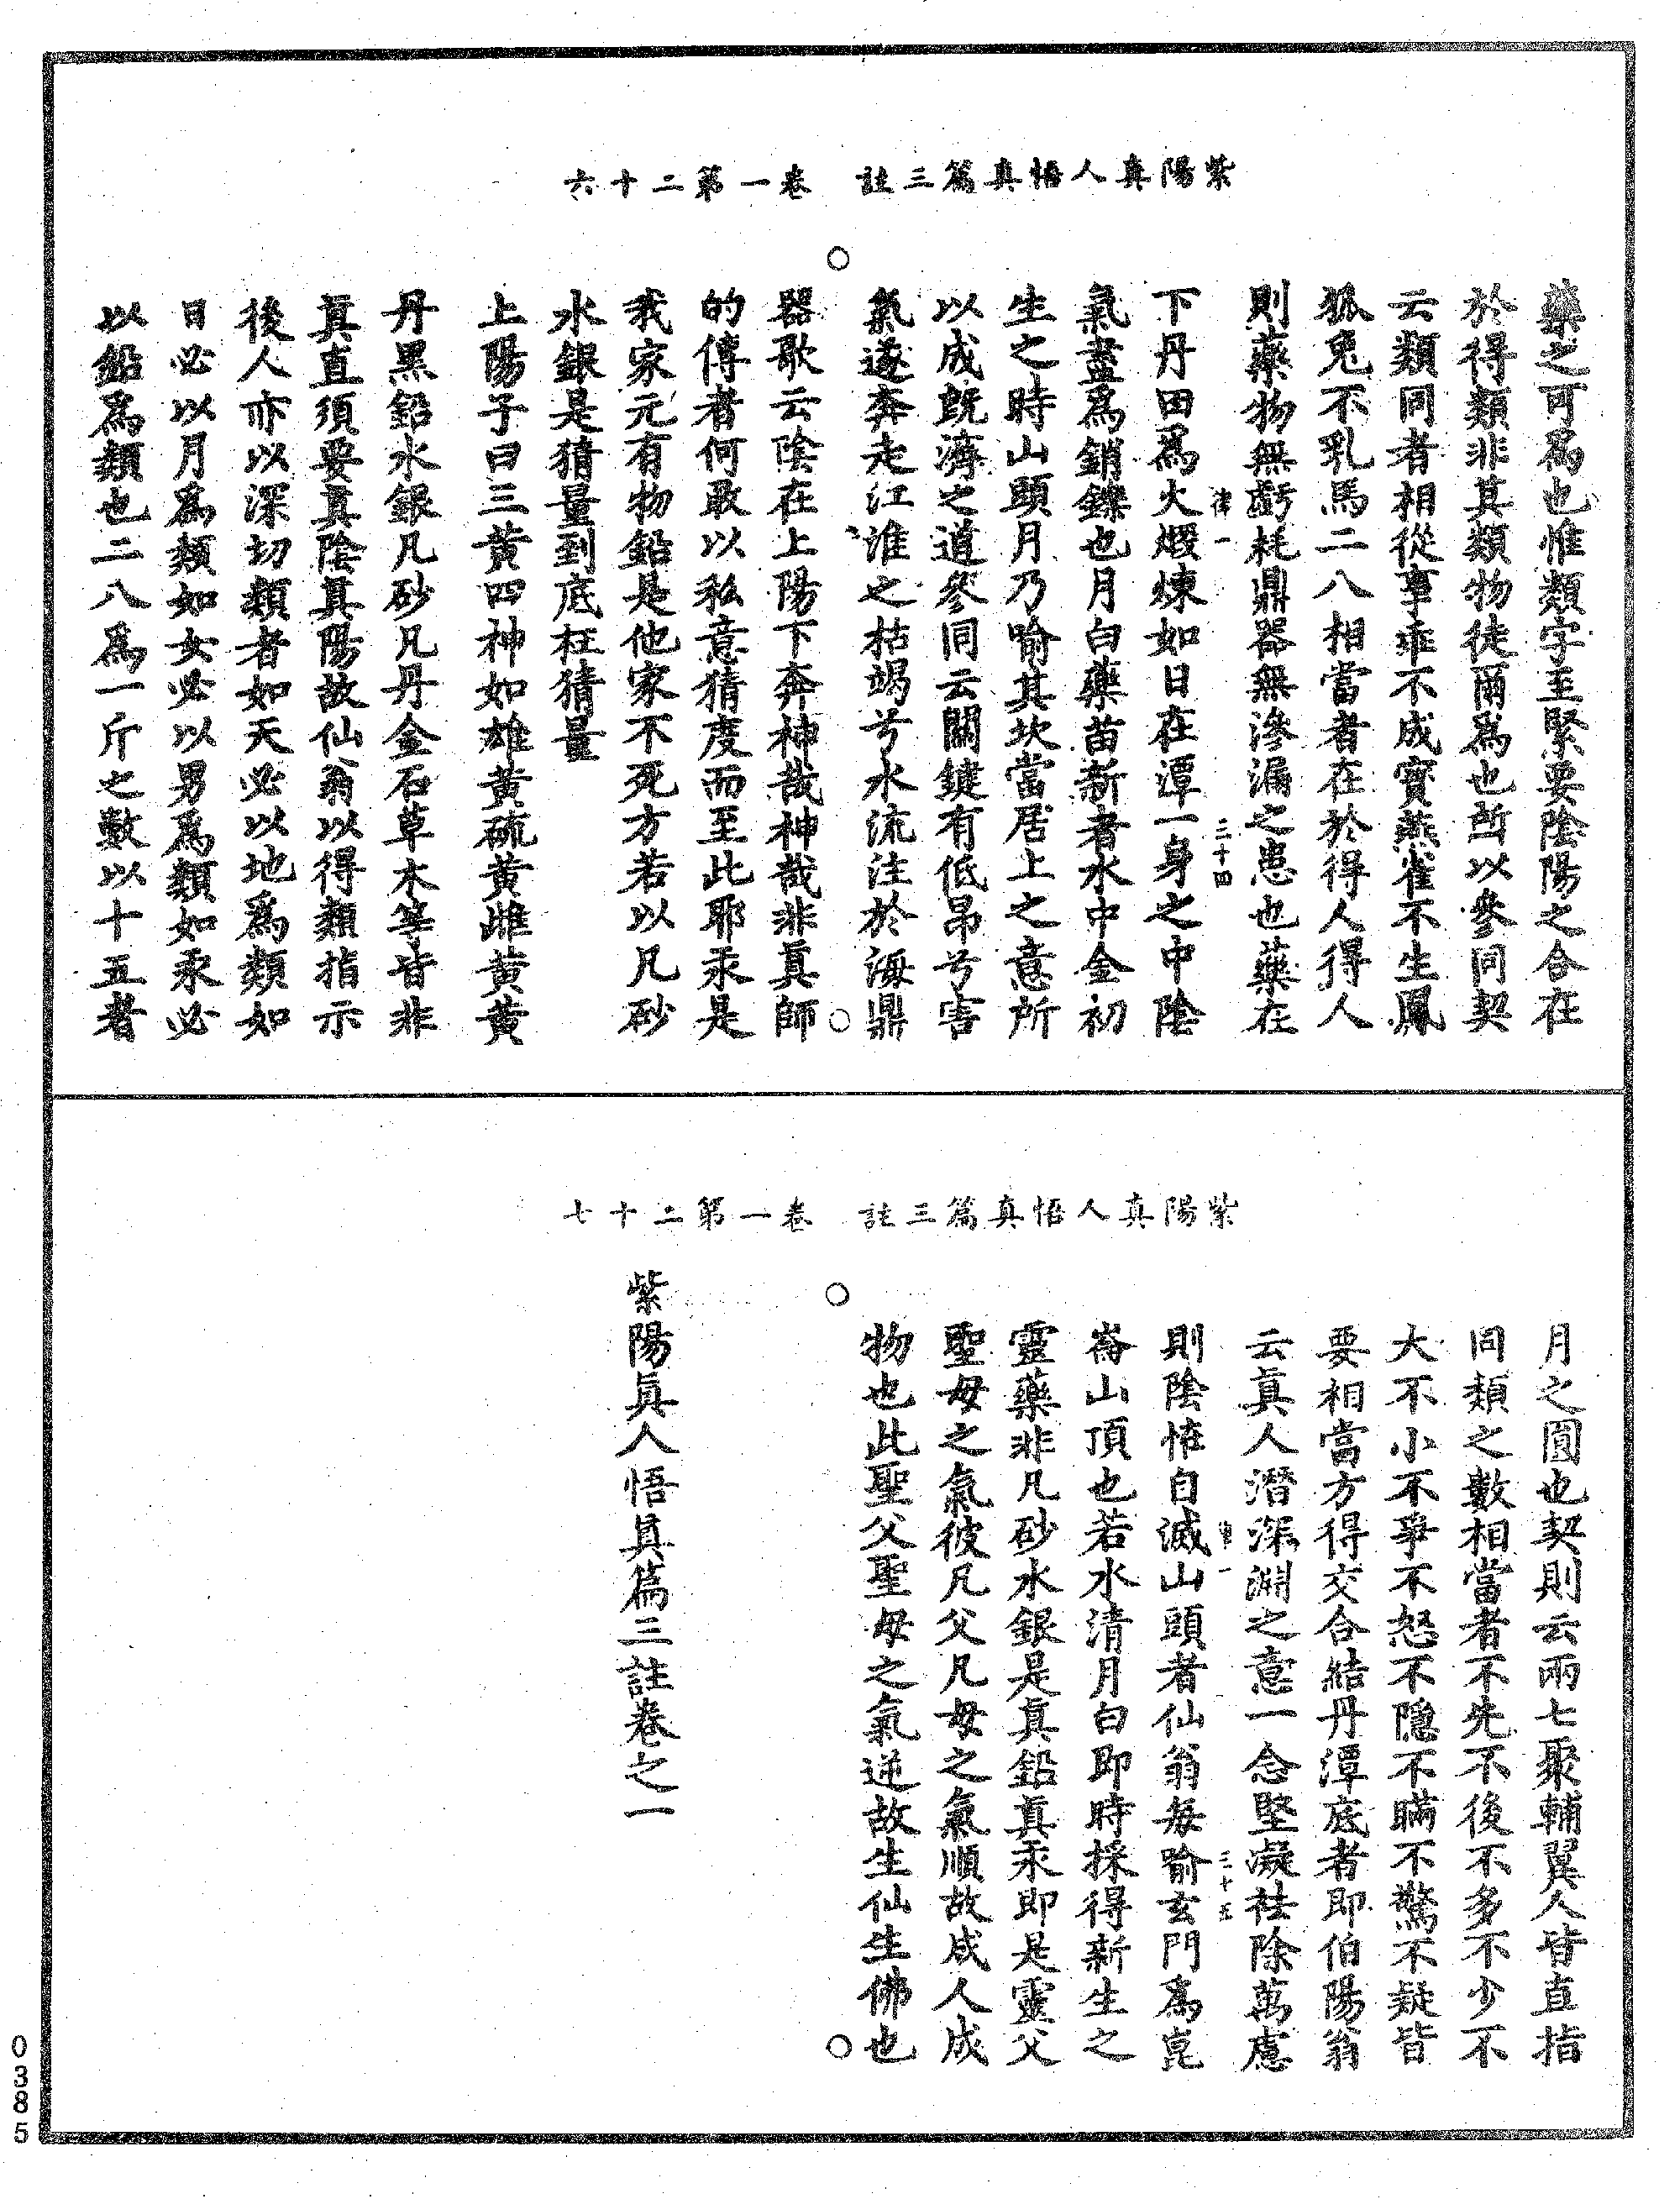 紫陽真人悟真篇三註　卷一第二十六
藥之可爲也惟類字至緊要陰陽之合在
於得類非其類物徒爾爲也所以參同契
云類同者相從事乖不成寶燕雀不生鳳
狐兎不乳馬二八相當者在於得人得人
則藥物無虧耗鼎器無滲漏之患也藥在
律一　三十四
下丹田爲火煅煉如日在潭一身之中陰
氣盡爲銷鑠也月白藥苗新者水中金初
生之時山頭月乃喻其坎當居上之意所
以成旣濟之道參同云關鍵有低昂兮害
氣遂奔走江淮之枯竭兮水流注於海鼎
器歌云陰在上陽下奔神哉神哉非眞師
的傳者何敢以私意猜度而至此耶汞是
我家元有物鉛是他家不死方若以凡砂
水銀是猜量到底枉猜量
上陽子曰三黃四神如雄黃硫黃雌黃黃
丹黑鉛水銀凡砂凡丹金石草木等皆非
眞直須要眞陰眞陽故仙翁以得類指示
後人亦以深切類者如天必以地爲類如
日必以月爲類如女必以男爲類如汞必
以鉛爲類也二八爲一斤之數以十五者
紫陽真人悟真篇三註　卷一第二十七
月之圓也契則云兩七聚輔翼人皆直指
同類之數相當者不先不後不多不少不
大不小不爭不怒不隱不瞞不驚不疑皆
要相當方得交合結丹潭底者即伯陽翁
云眞人潛深淵之意一念堅凝袪除萬慮
律一　三十五
則陰怪自滅山頭者仙翁每喻玄門爲崑
崙山頂也若水清月白即時採得新生之
靈藥非凡砂水銀是眞鉛眞汞即是靈父
聖母之氣彼凡父凡母之氣順故成人成
物也此聖父聖母之氣逆故生仙生佛也
紫陽眞人悟眞篇三註卷之一
0385